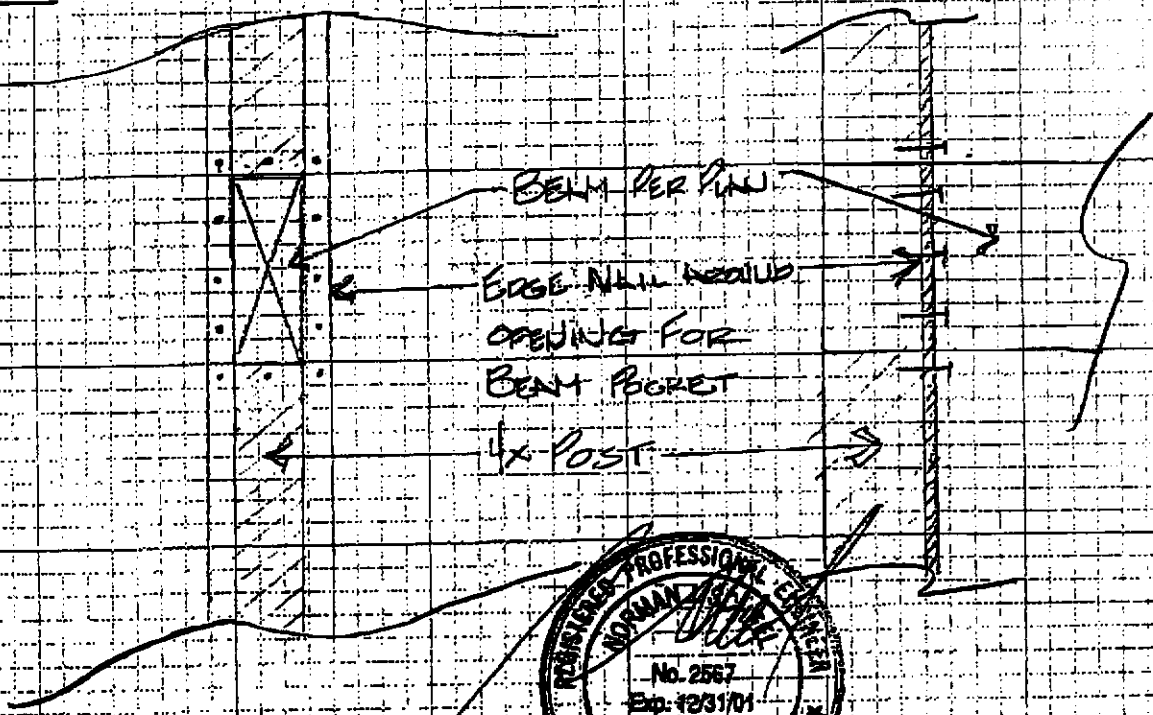 BEAM PER PLAN
EDGE NAIL AROUND
OPENING FOR
BEAM POCKET
4x POST
REGISTERED PROFESSIONAL ENGINEER
NORMAN
No. 2567
Exp. 12/31/01